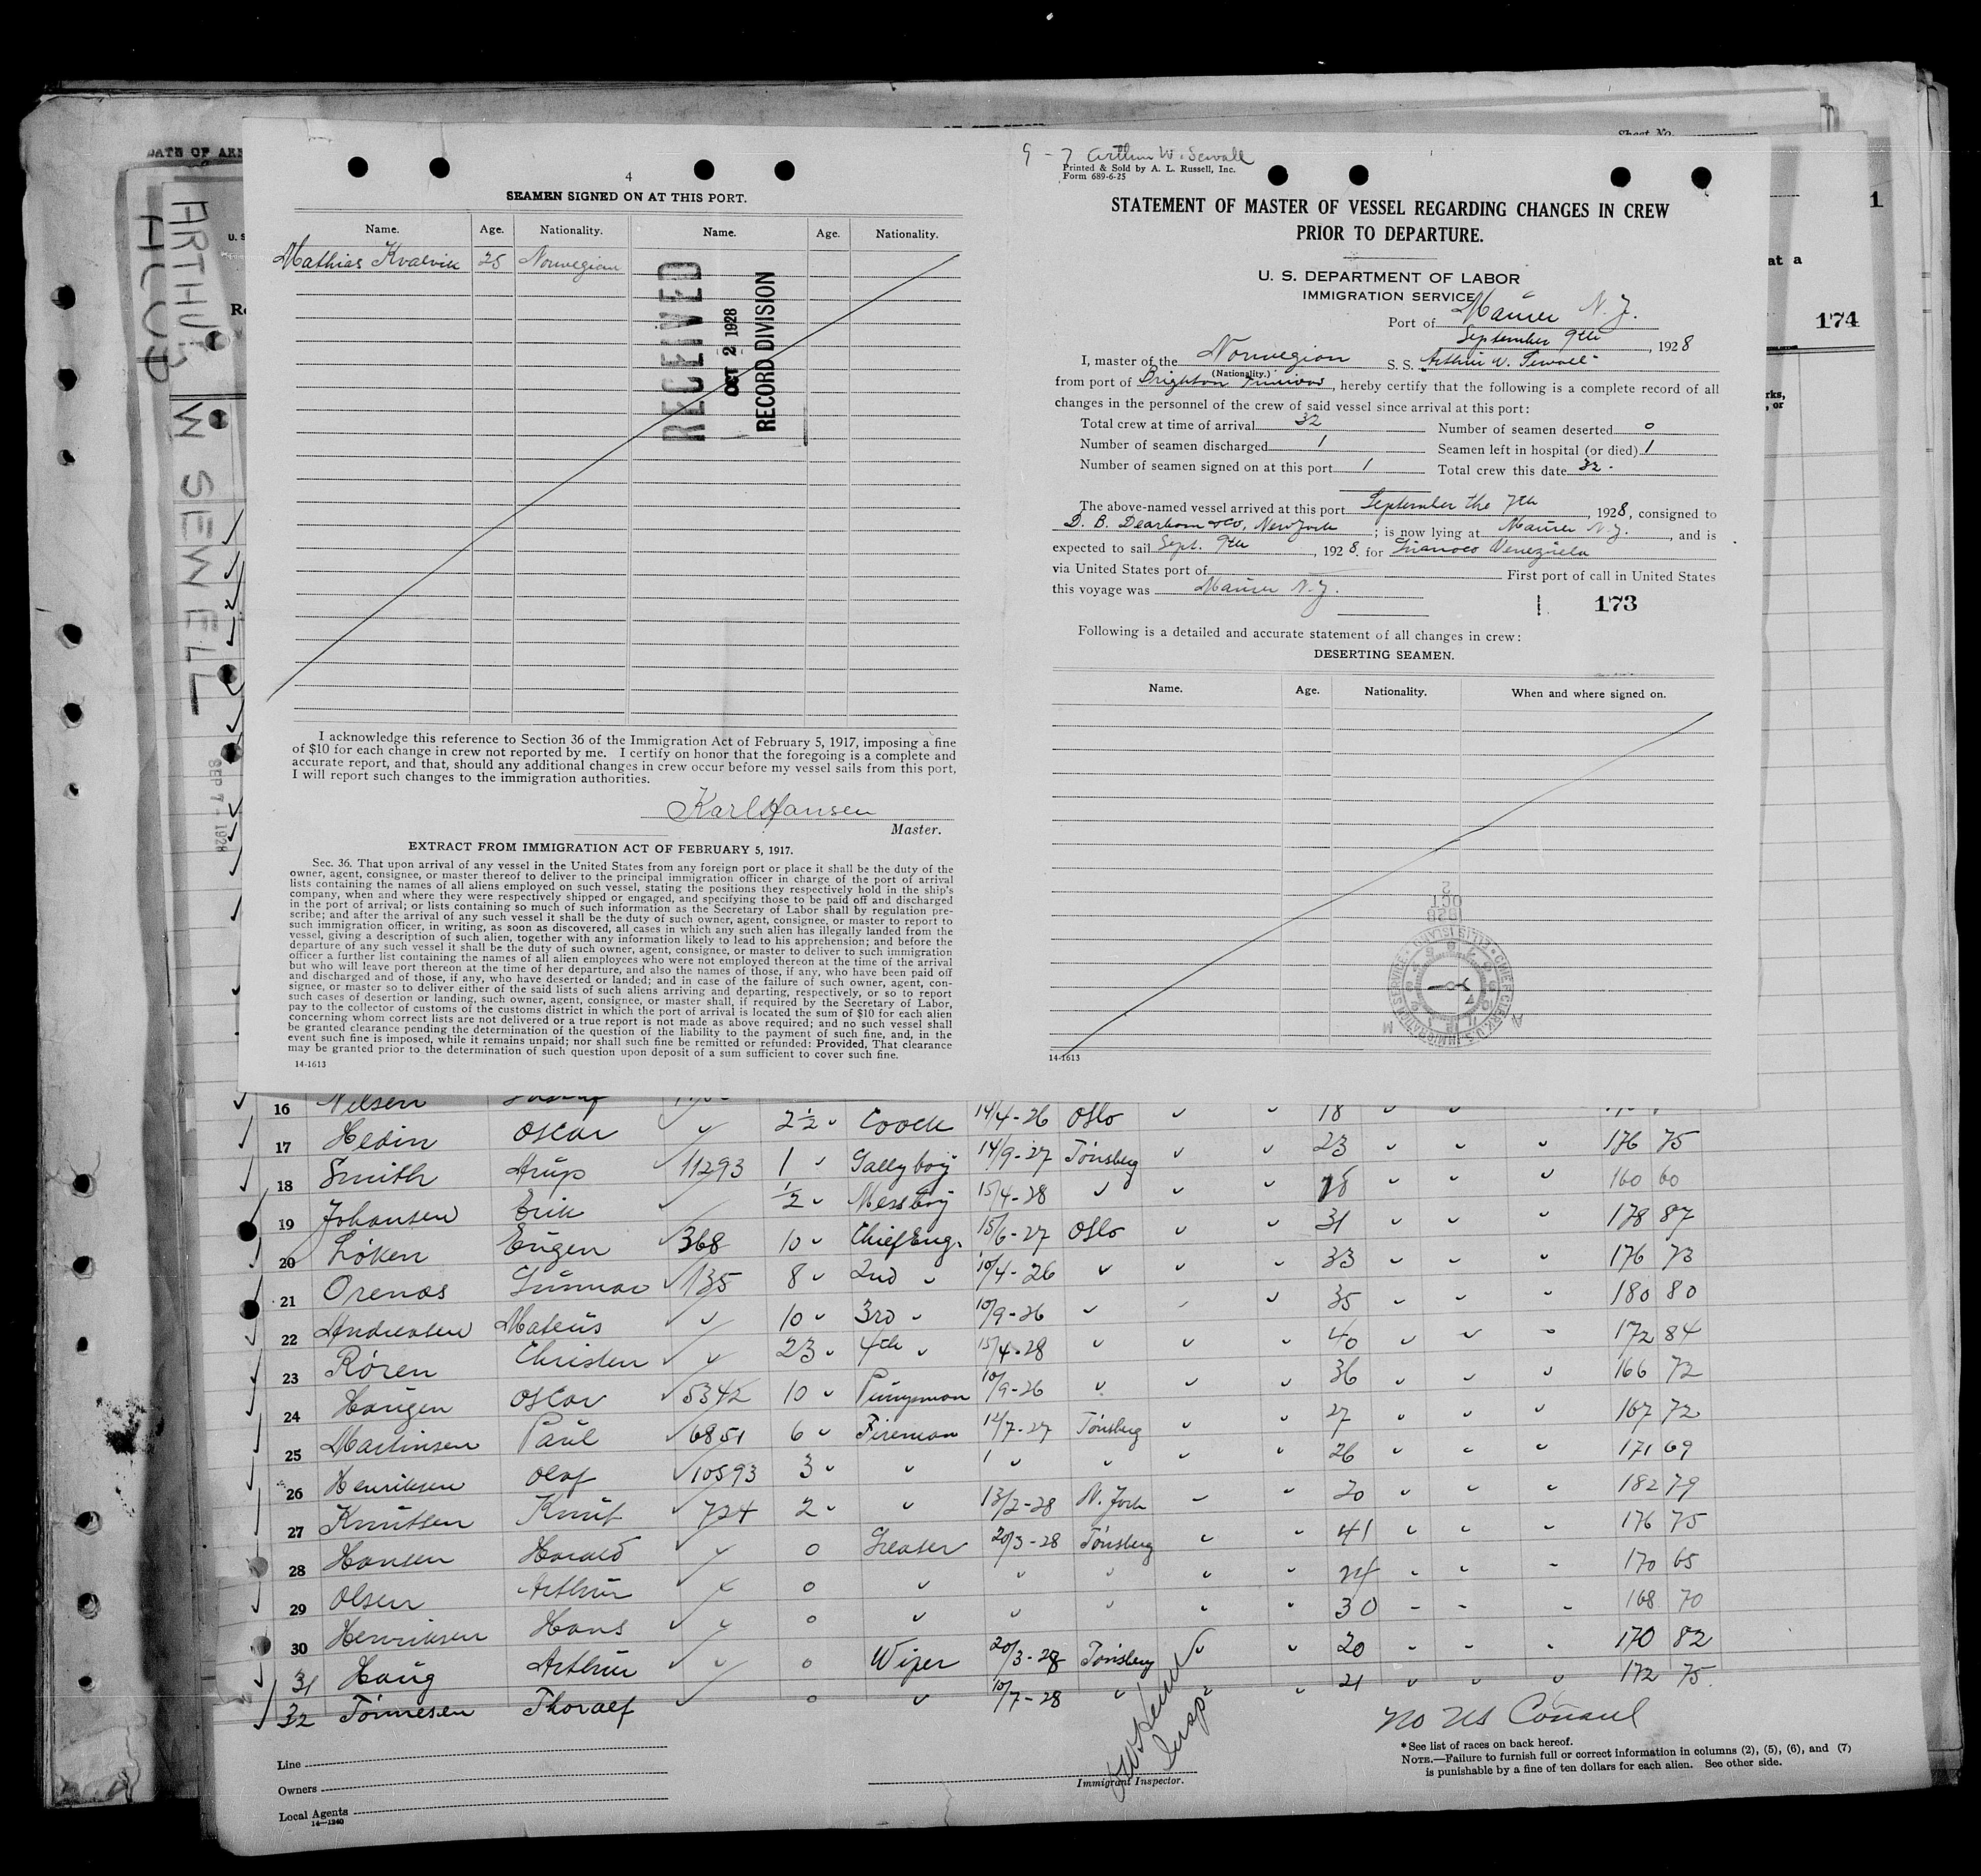 DATE OF
Sheet No.
ARTHUR
W SEWELL
SEP 7 1928
U. S
1
at a
174
rks,
, or
4
SEAMEN SIGNED ON AT THIS PORT.
Name. Age. Nationality. Name. Age. Nationality.
Mathias Kvalvik 25 Norwegian
RECEIVED
OCT 2 1928
RECORD DIVISION
I acknowledge this reference to Section 36 of the Immigration Act of February 5, 1917, imposing a fine
of $10 for each change in crew not reported by me. I certify on honor that the foregoing is a complete and
accurate report, and that, should any additional changes in crew occur before my vessel sails from this port,
I will report such changes to the immigration authorities.
Karl Hansen
Master.
EXTRACT FROM IMMIGRATION ACT OF FEBRUARY 5, 1917.
Sec. 36. That upon arrival of any vessel in the United States from any foreign port or place it shall be the duty of the
owner, agent, consignee, or master thereof to deliver to the principal immigration officer in charge of the port of arrival
lists containing the names of all aliens employed on such vessel, stating the positions they respectively hold in the ship's
company, when and where they were respectively shipped or engaged, and specifying those to be paid off and discharged
in the port of arrival; or lists containing so much of such information as the Secretary of Labor shall by regulation pre-
scribe; and after the arrival of any such vessel it shall be the duty of such owner, agent, consignee, or master to report to
such immigration officer, in writing, as soon as discovered, all cases in which any such alien has illegally landed from the
vessel, giving a description of such alien, together with any information likely to lead to his apprehension; and before the
departure of any such vessel it shall be the duty of such owner, agent, consignee, or master to deliver to such immigration
officer a further list containing the names of all alien employees who were not employed thereon at the time of the arrival
but who will leave port thereon at the time of her departure, and also the names of those, if any, who have been paid off
and discharged and of those, if any, who have deserted or landed; and in case of the failure of such owner, agent, con-
signee, or master so to deliver either of the said lists of such aliens arriving and departing, respectively, or so to report
such cases of desertion or landing, such owner, agent, consignee, or master shall, if required by the Secretary of Labor,
pay to the collector of customs of the customs district in which the port of arrival is located the sum of $10 for each alien
concerning whom correct lists are not delivered or a true report is not made as above required; and no such vessel shall
be granted clearance pending the determination of the question of the liability to the payment of such fine, and, in the
event such fine is imposed, while it remains unpaid; nor shall such fine be remitted or refunded: Provided, That clearance
may be granted prior to the determination of such question upon deposit of a sum sufficient to cover such fine.
14-1613
9 - 7 Arthur W. Sewall
Printed & Sold by A. L. Russell, Inc.
Form 689-6-25
STATEMENT OF MASTER OF VESSEL REGARDING CHANGES IN CREW
PRIOR TO DEPARTURE.
U. S. DEPARTMENT OF LABOR
IMMIGRATION SERVICE
Port of Maurer N. J.
September 9th, 1928
I, master of the Norwegian S. S. Arthur W. Sewall
(Nationality.)
from port of Brighton, hereby certify that the following is a complete record of all
changes in the personnel of the crew of said vessel since arrival at this port:
Total crew at time of arrival 32 Number of seamen deserted 0
Number of seamen discharged 1 Seamen left in hospital (or died) 1
Number of seamen signed on at this port 1 Total crew this date 32.
The above-named vessel arrived at this port September the 7th, 1928, consigned to
D. B. Dearborn & Co, New York; is now lying at Maurer N. J., and is
expected to sail Sept. 9th, 1928. for Guanoco Venezuela
via United States port of First port of call in United States
this voyage was Maurer N. J.
173
Following is a detailed and accurate statement of all changes in crew:
DESERTING SEAMEN.
Name. Age. Nationality. When and where signed on.
OCT 2 1928
CHIEF CLERK, U.S. IMMIGRATION SERVICE ELLIS ISLAND
14-1613
16 Nilsen 2½ " Coock 14/4-26 Oslo " " 18 " "
17 Hedin Oscar " 1 " Gallyboy 14/9-27 Tönsberg " " 23 " " " 176 75
18 Smith Arup 11293 ½ " Messboy 15/4-28 " " " 18 " " " 160 60
19 Johansen Erik 10 " Chief Eng. 15/6-27 Oslo " " 31 " " " 178 87
20 Löken Eugen 368 8 " 2nd " 10/4-26 " " " 33 " " " 176 73
21 Orenas Gunnar 135 10 " 3rd " 10/9-26 " " " 35 " " " 180 80
22 Andreasen Mateus " 23 " 4th " 15/4-28 " " " 40 " " " 172 84
23 Rören Christen " 10 " Pumpman 10/9-26 " " " 36 " " " 166 72
24 Haugen Oscar 5342 6 " Fireman 12/7-27 Tönsberg " " 27 " " " 167 72
25 Martinsen Paul 6851 3 " " " " " " 26 " " " 171 69
26 Henriksen Olaf 10593 2 " " 13/2-28 N. York " " 20 " " " 182 79
27 Knutsen Knut 724 0 Greaser 20/3-28 Tönsberg " " 41 " " " 176 75
28 Hansen Harald " 0 " " " " " 24 " " " 170 65
29 Olsen Arthur " 0 " " " " " 30 " " " 168 70
30 Henriksen Hans " 0 Wiper 20/3-28 Tönsberg " " 20 " " " 170 82
31 Haug Arthur " 0 " 10/7-28 " " " 21 " " " 172 75.
32 Tönnesen Thoralf
No US Consul
Insp
Line
Owners
Local Agents
14-1240
Immigrant Inspector.
* See list of races on back hereof.
NOTE.—Failure to furnish full or correct information in columns (2), (5), (6), and (7)
is punishable by a fine of ten dollars for each alien. See other side.